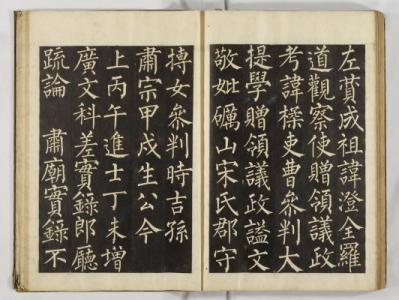 左贊成祖諱澄全羅
道觀察使贈領議政
考諱㮨吏曹參判大
提學贈領議政謚文
敬妣礪山宋氏郡守
摶女參判時吉孫
肅宗甲戌生公今
上丙午進士丁未增
廣文科差實錄郎廳
疏論 肅廟實錄不